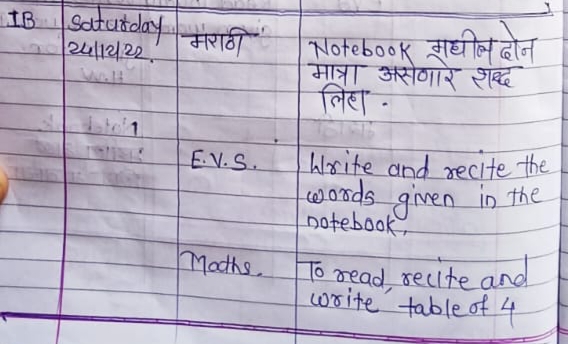 IB Saturday मराठी Notebook मधील दोन
24/12/22. मात्रा असणारे शब्द
लिहा.
E.V.S. Write and recite the
words given in the
notebook.
Maths. To read, recite and
write table of 4